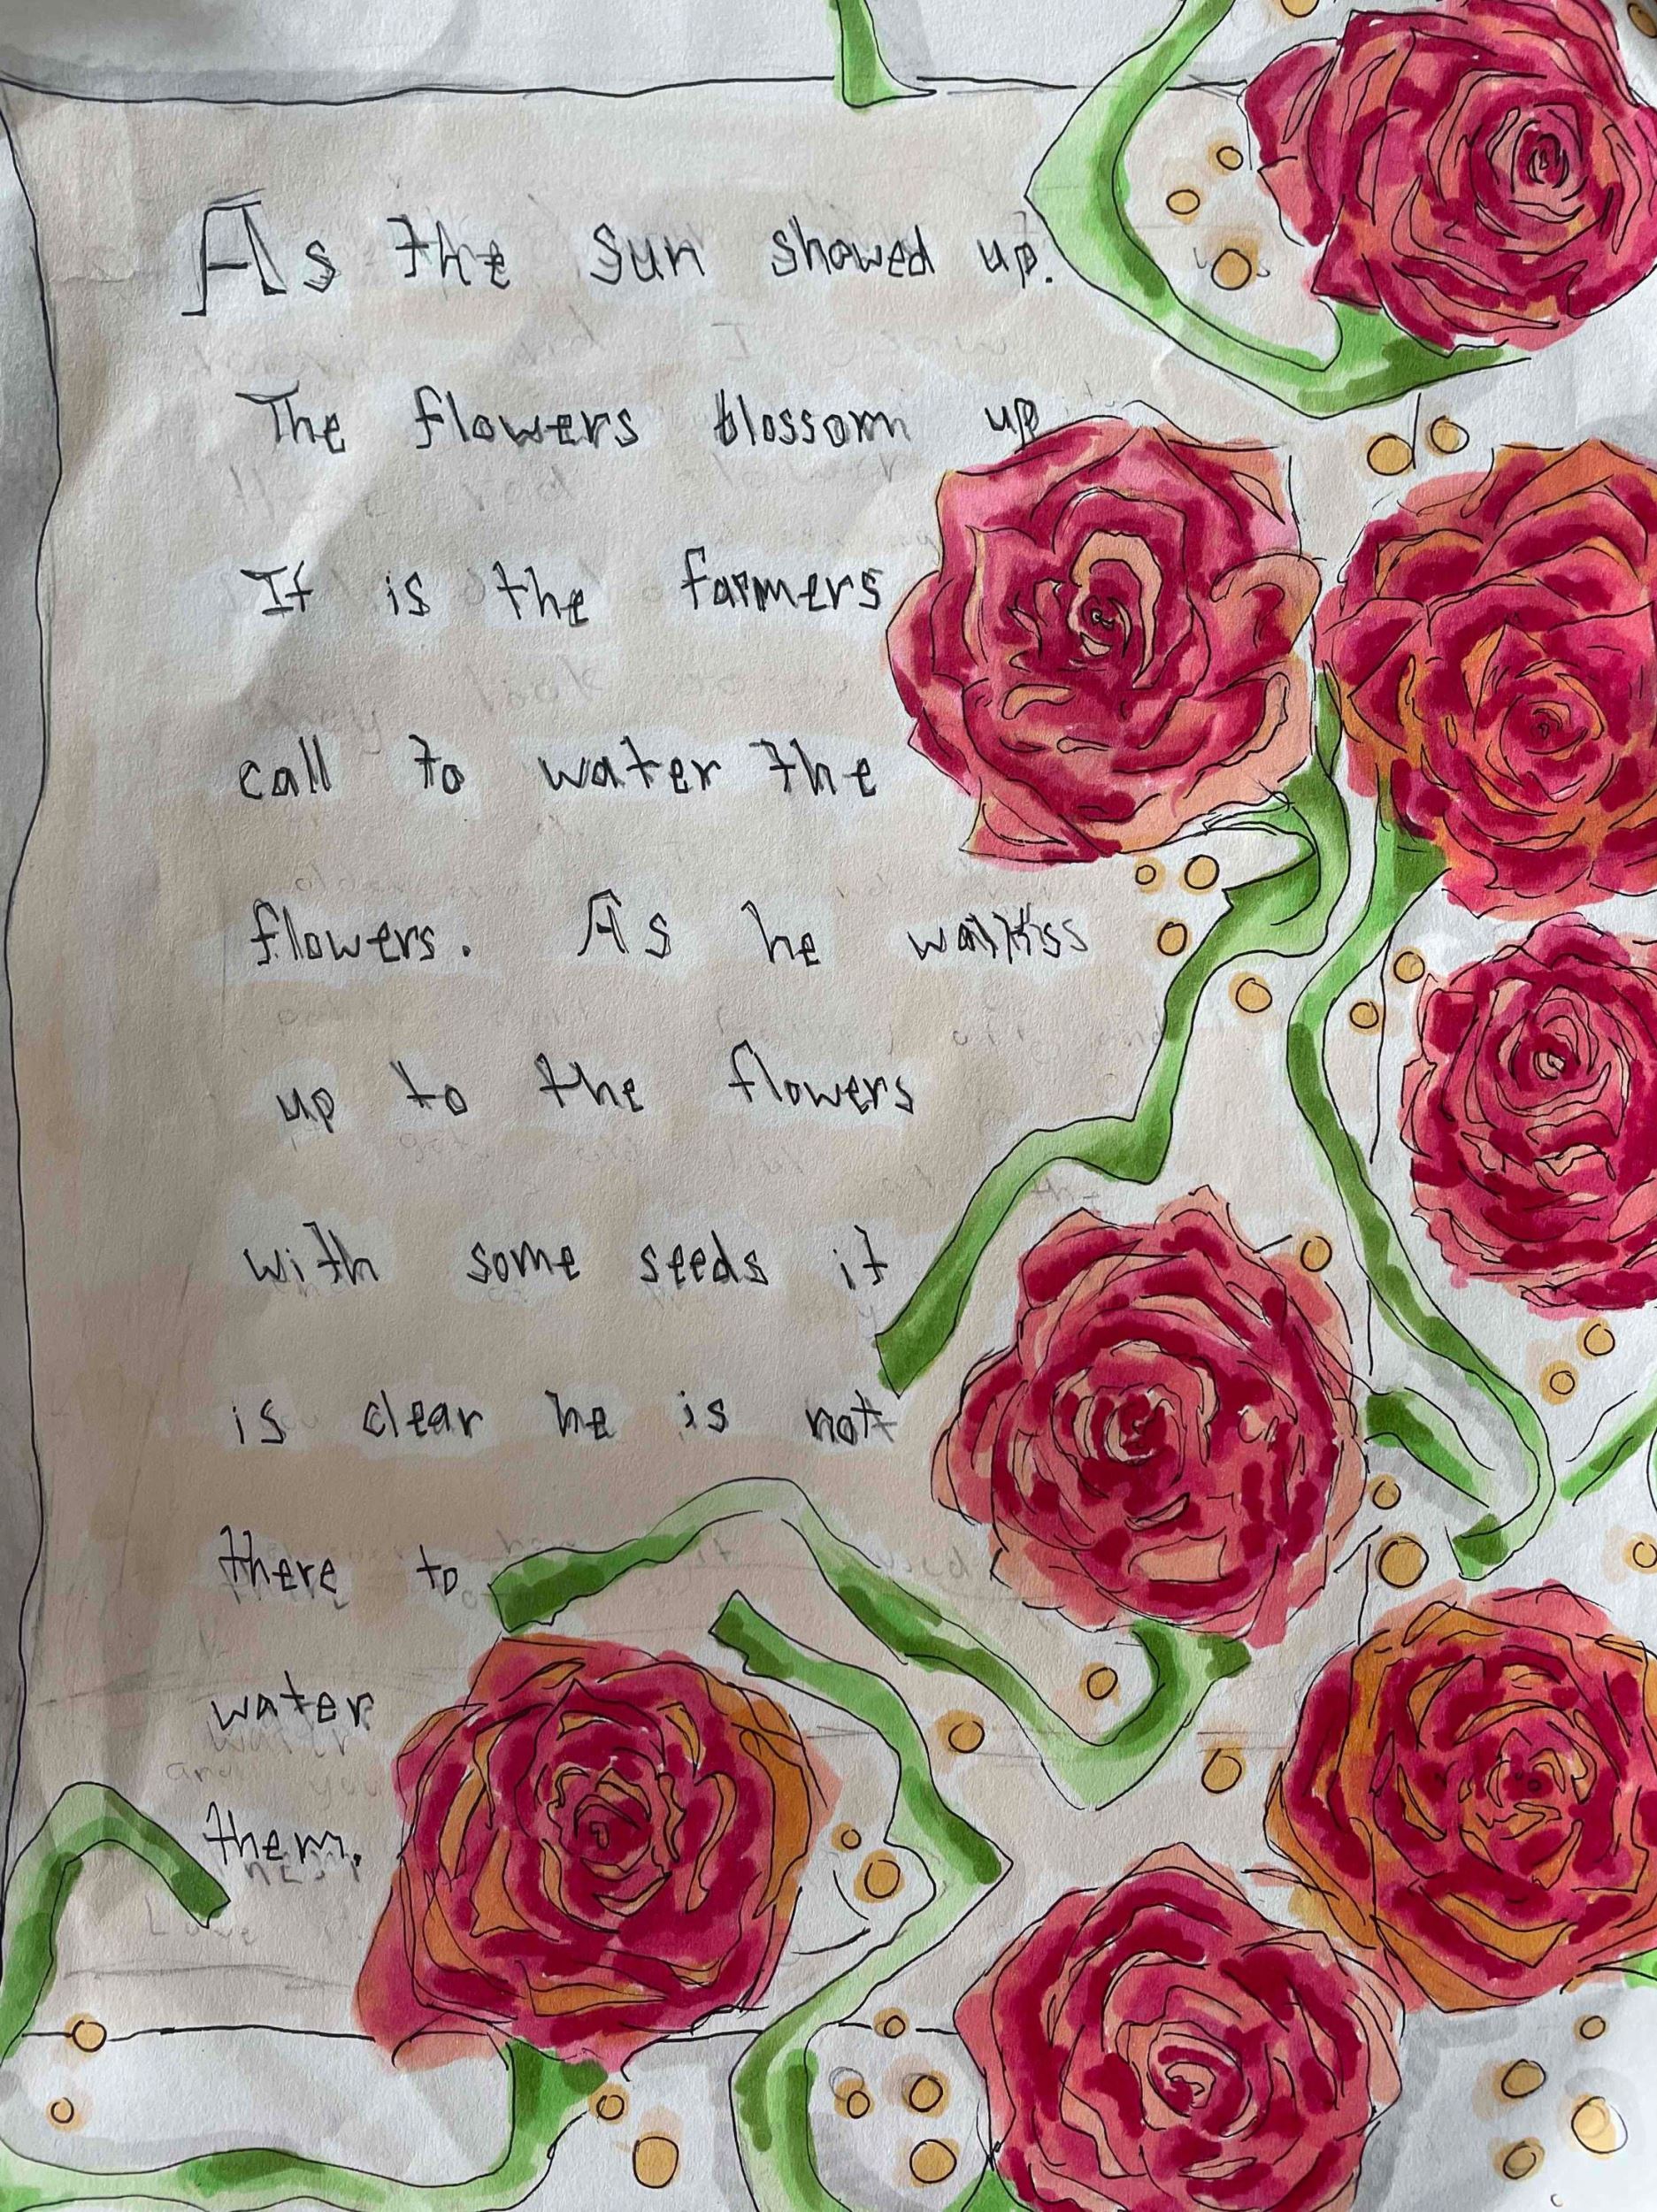 As the sun showed up.
The flowers blossom up
It is the farmers
call to water the
flowers. As he walkss
up to the flowers
with some seeds it
is clear he is not
there to
water
them.